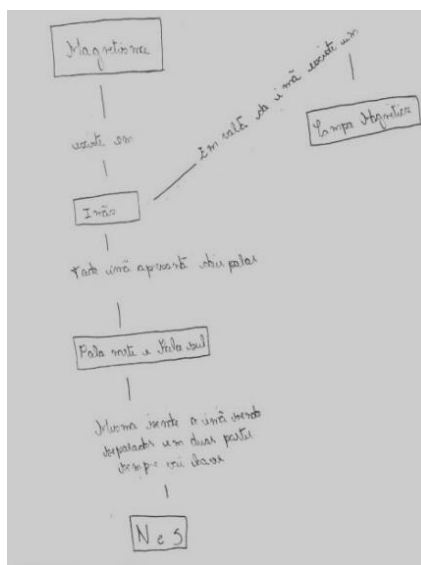 Magnetismo
existe em
Imãs
Em volta do imã existe um
Campo Magnético
todo imã apresenta dois polos
Polo norte e Polo sul
Mesmo sendo o imã sendo
separados em duas partes
sempre vai haver
N e S